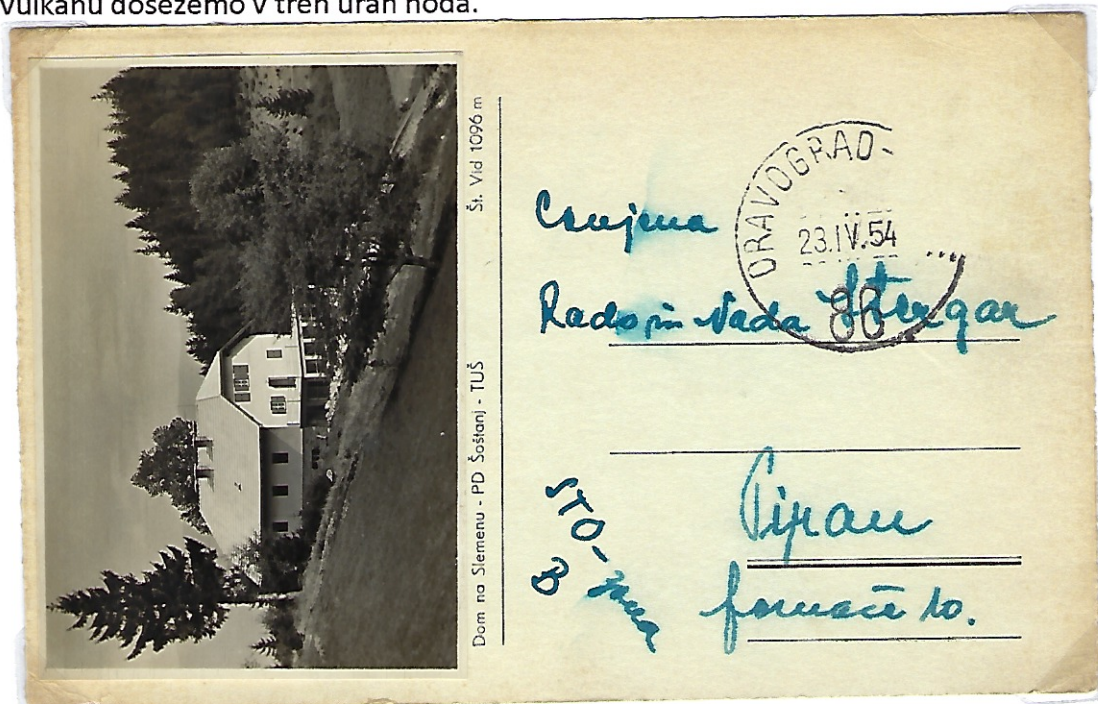 vulkanu dosežemo v tren uran hoda.
Dom na Slemenu - PD Šoštanj - TUŠ
Št. Vid 1096 m
DRAVOGRAD
23.IV.54
Cenjena
Rado in Nada Štergar
Piran
fornače 10.
STO-
B